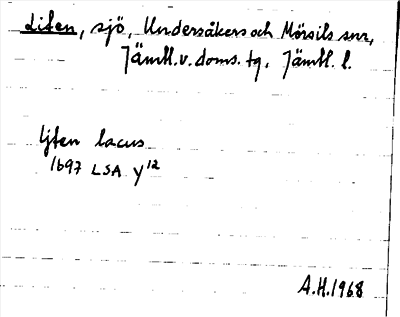 Liten, sjö, Undersåkers och Mörsils snr,
Jämtl. v. doms. tg. Jämtl. l.
Ljten lacus
1697 LSA Y12
A.H. 1968